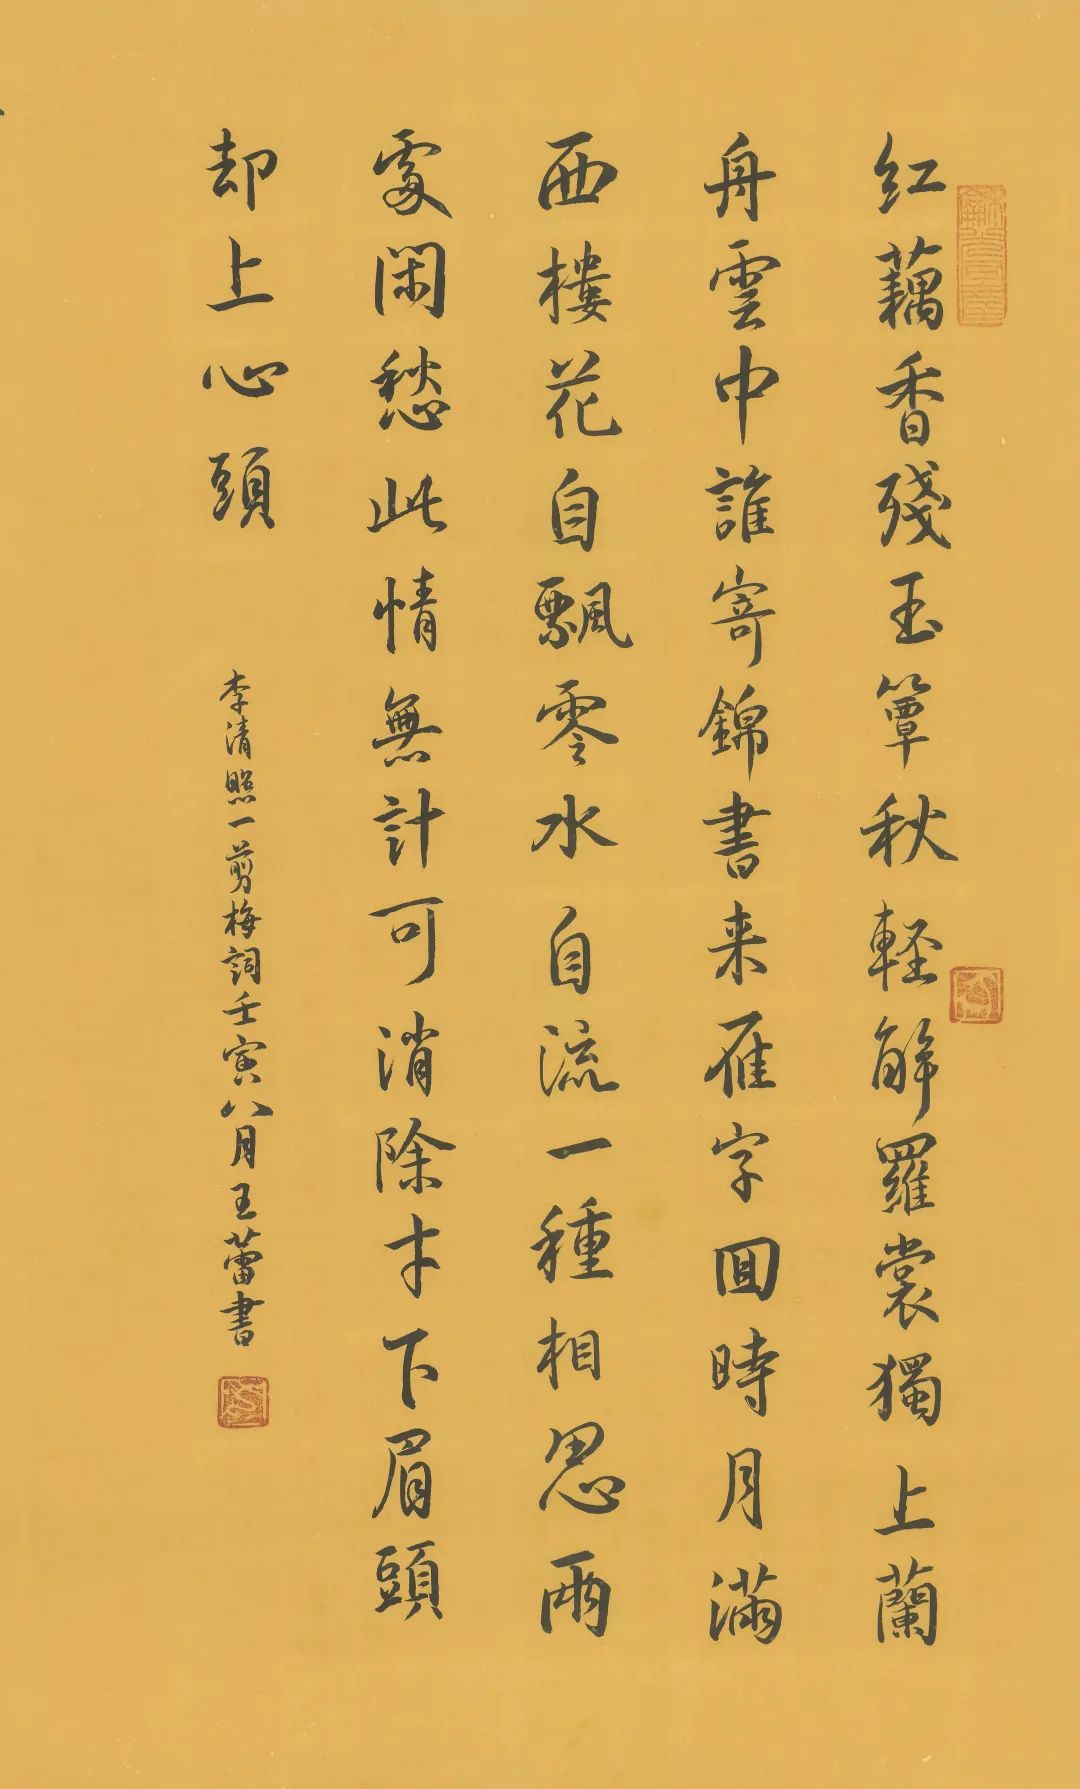 红藕香残玉簟秋軽解羅裳獨上蘭
舟雲中誰寄錦書来雁字回時月滿
西樓花自飄零水自流一種相思兩
處閑愁此情無計可消除才下眉頭
却上心頭
李清照一剪梅詞壬寅八月王蕾書